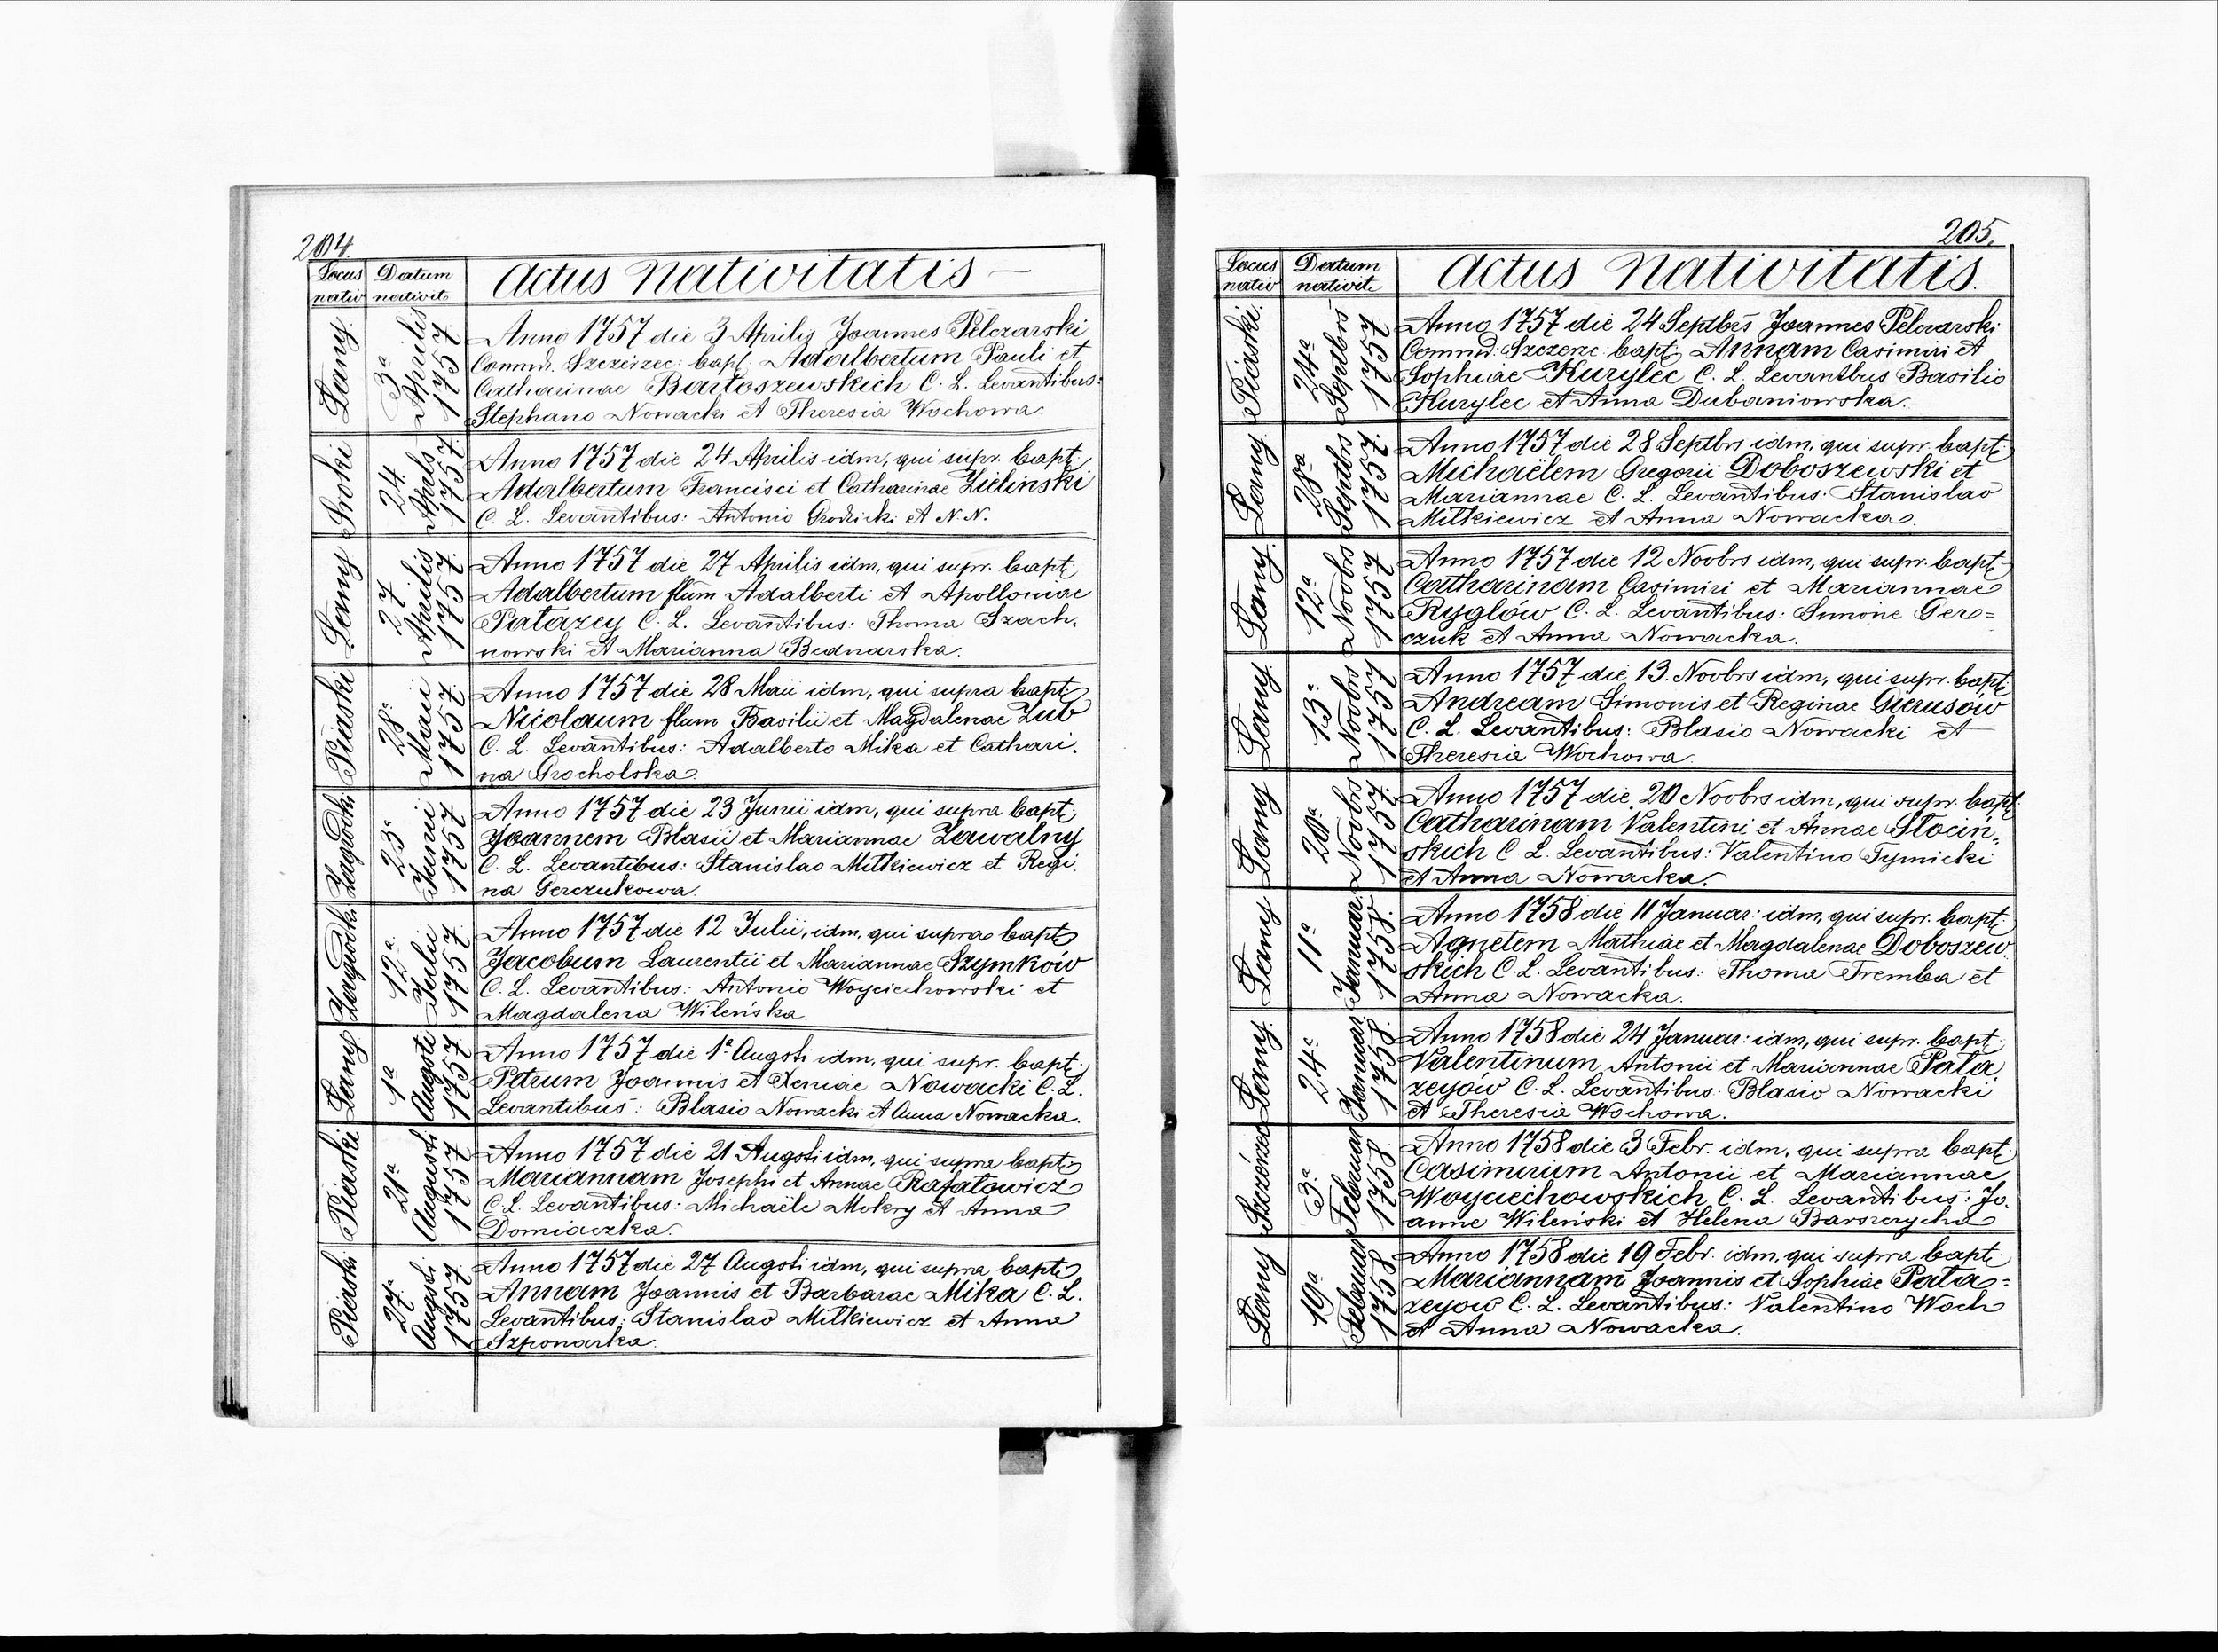 204.
Locus nativ
Datum nativit.
Actus Nativitatis
Łany
3ª Aprilis 1757
Anno 1757 die 3 Aprilis Joannes Pelczarski
Commd. Szczerzec: bapt. Adalbertum Pauli et
Catharinae Bartoszewskich C. L. Levantibus:
Stephano Nowacki et Theresia Wochowa.
Sroki
24 Aprils 1757
Anno 1757 die 24 Aprilis idm, qui supr. bapt:
Adalbertum Francisci et Catharinae Zielinski
C. L. Levantibus: Antonio Grodzicki et N. N.
Łany
27 Aprilis 1757
Anno 1757 die 27 Aprilis idm, qui supr. bapt:
Adalbertum flum Adalberti et Apolloniae
Patazey C. L. Levantibus: Thoma Szach,
nowski et Marianna Bednarska.
Piaski
28ª Maii 1757
Anno 1757 die 28 Maii idm, qui supra bapt:
Nicolaum flum Basilii et Magdalenae Zub
C. L. Levantibus: Adalberto Mika et Cathari,
na Grocholska.
Zagródki
23ª Junii 1757
Anno 1757 die 23 Junii idm, qui supra bapt:
Joannem Blasii et Mariannae Zawalny
C. L. Levantibus: Stanislao Mitkiewicz et Regi,
na Gerczukowa.
Zagródki
12ª Julii 1757
Anno 1757 die 12 Julii, idm, qui supra bapt:
Jacobum Laurentii et Mariannae Szymków
C. L. Levantibus: Antonio Woyciechowski et
Magdalena Wileńska.
Łany
1ª Augsti 1757
Anno 1757 die 1ª Augsti idm, qui supr. bapt:
Petrum Joannis et Xeniae Nowacki C. L.
Levantibus: Blasio Nowacki et Anna Nowacka.
Piaski
21ª Augusti 1757
Anno 1757 die 21 Augsti idm, qui supra bapt:
Mariannam Josephi et Annae Rafałowicz
C L. Levantibus: Michaële Mokry et Anna
Domiaczka.
Piaski
27ª Augsti 1757
Anno 1757 die 27 Augsti idm, qui supra bapt:
Annam Joannis et Barbarae Mika C. L.
Levantibus: Stanislao Mitkiewicz et Anna
Szponarka.
205.
Locus nativ
Datum nativit.
Actus Nativitatis.
Piaski.
24ª Septbrs 1757.
Anno 1757 die 24 Septbrs Joannes Pelczarski
Commd: Szczerze: bapt: Annam Casimiri et
Sophiae Kurylec C. L. Levantbus Basilio
Kurylec et Anna Dubaniowska.
Łany
28ª Septbrs 1757.
Anno 1757 die 28 Septbrs idm, qui supr. bapt:
Michaëlem Gregorii Doboszewski et
Mariannae C. L. Levantibus: Stanislao
Mitkiewicz et Anna Nowacka.
Łany.
12ª Novbrs 1757
Anno 1757 die 12 Novbrs idm, qui supr. bapt:
Catharinam Casimiri et Mariannae
Ryglów C. L. Levantibus: Simone Ger=
czuk et Anna Nowacka.
Łany
13ª Novbrs 1757
Anno 1757 die 13. Novbrs idm, qui supr. bapt:
Andream Simonis et Reginae Gierusów
C. L. Levantibus: Blasio Nowacki et
Theresia Wochowa.
Łany
20ª Novbrs 1757.
Anno 1757 die 20 Novbrs idm, qui supr. bapt:
Catharinam Valentini et Annae Słociń,
skich C. L. Levantibus: Valentino Tymicki
et Anna Nowacka.
Łany
11ª Januar. 1758.
Anno 1758 die 11 Januar: idm, qui supr. bapt:
Agnetem Mathiae et Magdalenae Doboszew,
skich C. L. Levantibus: Thoma Tremba et
Anna Nowacka.
Łany
24ª Januar. 1758.
Anno 1758 die 24 Januar: idm, qui supr. bapt:
Valentinum Antonii et Mariannae Pata
zeyow C. L. Levantibus: Blasio Nowacki
et Theresia Wochowa.
Szczérzec
3ª Februar 1758
Anno 1758 die 3 Febr. idm, qui supra bapt:
Casimirum Antonii et Mariannae
Woyciechowskich C. L. Levantibus: Jo,
anne Wileński et Helena Barszczycha
Łany
19ª Februar 1758.
Anno 1758 die 19 Febr. idm, qui supra bapt:
Mariannam Joannis et Sophiae Pata=
zeyow C. L. Levantibus: Valentino Woch
et Anna Nowacka.